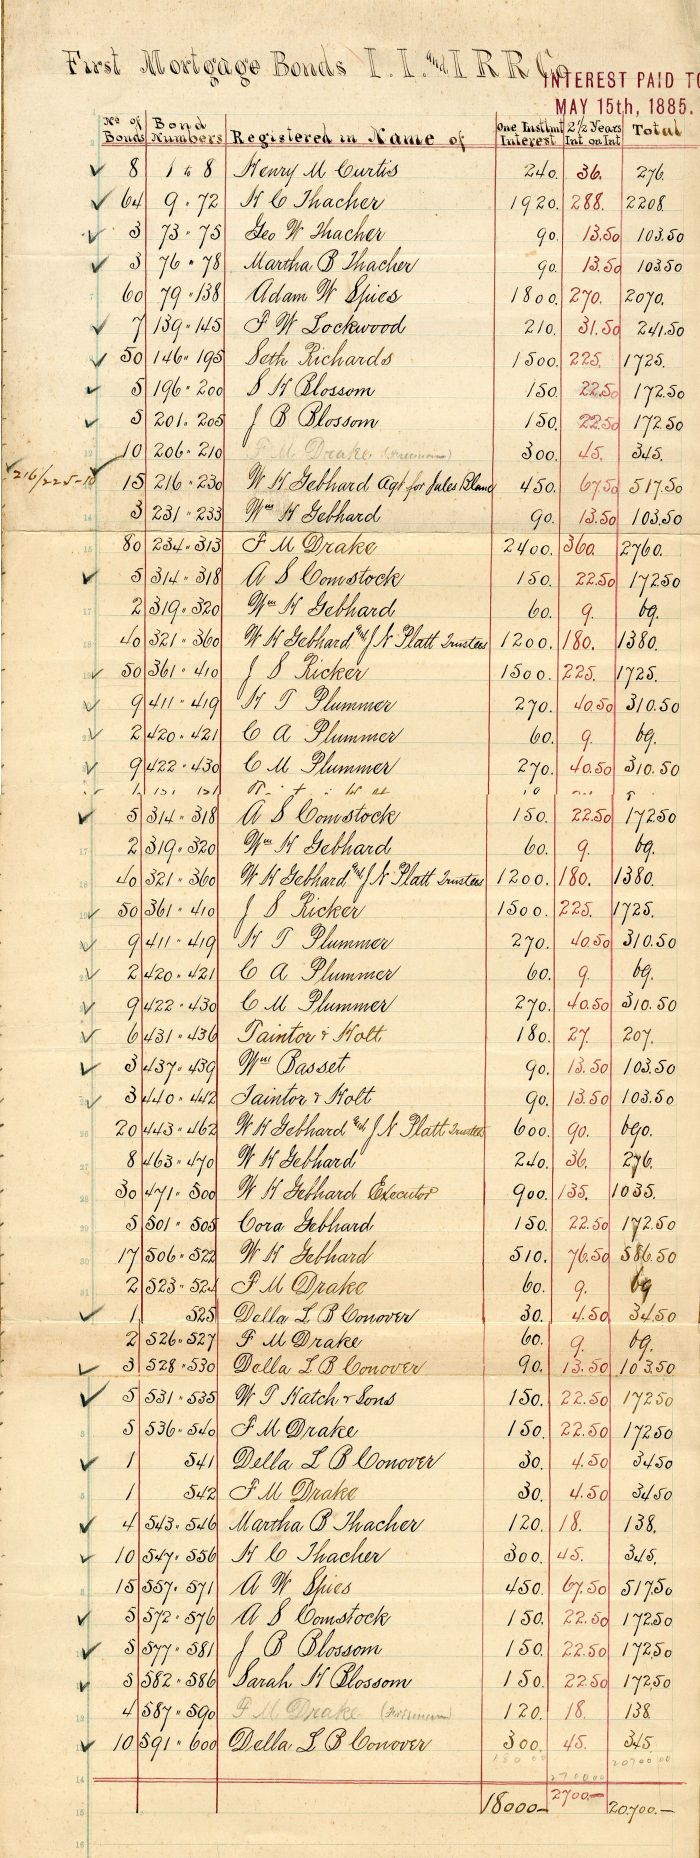 First Mortgage Bonds I. I. and I R R Co
INTEREST PAID TO
MAY 15th, 1885.
No of Bonds Bond Numbers Registered in Name of One Instlmt Interest 2½ Years Int on Int Total
8 1 to 8 Henry M Curtis 240. 36. 276.
64 9 " 72 H C Thacher 1920. 288. 2208.
3 73 " 75 Geo W Thacher 90. 13.50 103.50
3 76 " 78 Martha B Thacher 90. 13.50 103.50
60 79 " 138 Adam W Spies 1800. 270. 2070.
7 139 " 145 F W Lockwood 210. 31.50 241.50
50 146 " 195 Seth Richards 1500. 225. 1725.
5 196 " 200 S H Blossom 150. 22.50 172.50
5 201 " 205 J B Blossom 150. 22.50 172.50
10 206 " 210 F M Drake 300. 45. 345.
216/225-10 15 216 " 230 W H Gebhard Agt for Jules Blanc 450. 67.50 517.50
3 231 " 233 Wm H Gebhard 90. 13.50 103.50
80 234 " 313 F M Drake 2400. 360. 2760.
5 314 " 318 A S Comstock 150. 22.50 172.50
2 319 " 320 Wm H Gebhard 60. 9. 69.
40 321 " 360 W H Gebhard and J N Platt Trustees 1200. 180. 1380.
50 361 " 410 J S Ricker 1500. 225. 1725.
9 411 " 419 H T Plummer 270. 40.50 310.50
2 420 " 421 C A Plummer 60. 9. 69.
9 422 " 430 C M Plummer 270. 40.50 310.50
5 314 " 318 A S Comstock 150. 22.50 172.50
2 319 " 320 Wm H Gebhard 60. 9. 69.
40 321 " 360 W H Gebhard and J N Platt Trustees 1200. 180. 1380.
50 361 " 410 J S Ricker 1500. 225. 1725.
9 411 " 419 H T Plummer 270. 40.50 310.50
2 420 " 421 C A Plummer 60. 9. 69.
9 422 " 430 C M Plummer 270. 40.50 310.50
6 431 " 436 Taintor & Holt 180. 27. 207.
3 437 " 439 Wm Basset 90. 13.50 103.50
3 440 " 442 Taintor & Holt 90. 13.50 103.50
20 443 " 462 W H Gebhard and J N Platt Trustees 600. 90. 690.
8 463 " 470 W H Gebhard 240. 36. 276.
30 471 " 500 W H Gebhard Executor 900. 135. 1035.
5 501 " 505 Cora Gebhard 150. 22.50 172.50
17 506 " 522 W H Gebhard 510. 76.50 586.50
2 523 " 524 F M Drake 60. 9. 69
1 525 Della L B Conover 30. 4.50 34.50
2 526 " 527 F M Drake 60. 9. 69.
3 528 " 530 Della L B Conover 90. 13.50 103.50
5 531 " 535 W T Hatch & Sons 150. 22.50 172.50
5 536 " 540 F M Drake 150. 22.50 172.50
1 541 Della L B Conover 30. 4.50 34.50
1 542 F M Drake 30. 4.50 34.50
4 543 " 546 Martha B Thacher 120. 18. 138.
10 547 " 556 H C Thacher 300. 45. 345.
15 557 " 571 A W Spies 450. 67.50 517.50
5 572 " 576 A S Comstock 150. 22.50 172.50
5 577 " 581 J B Blossom 150. 22.50 172.50
5 582 " 586 Sarah H Blossom 150. 22.50 172.50
4 587 " 590 F M Drake 120. 18. 138
10 591 " 600 Della L B Conover 300. 45. 345.
18000- 2700.- 20.700.-